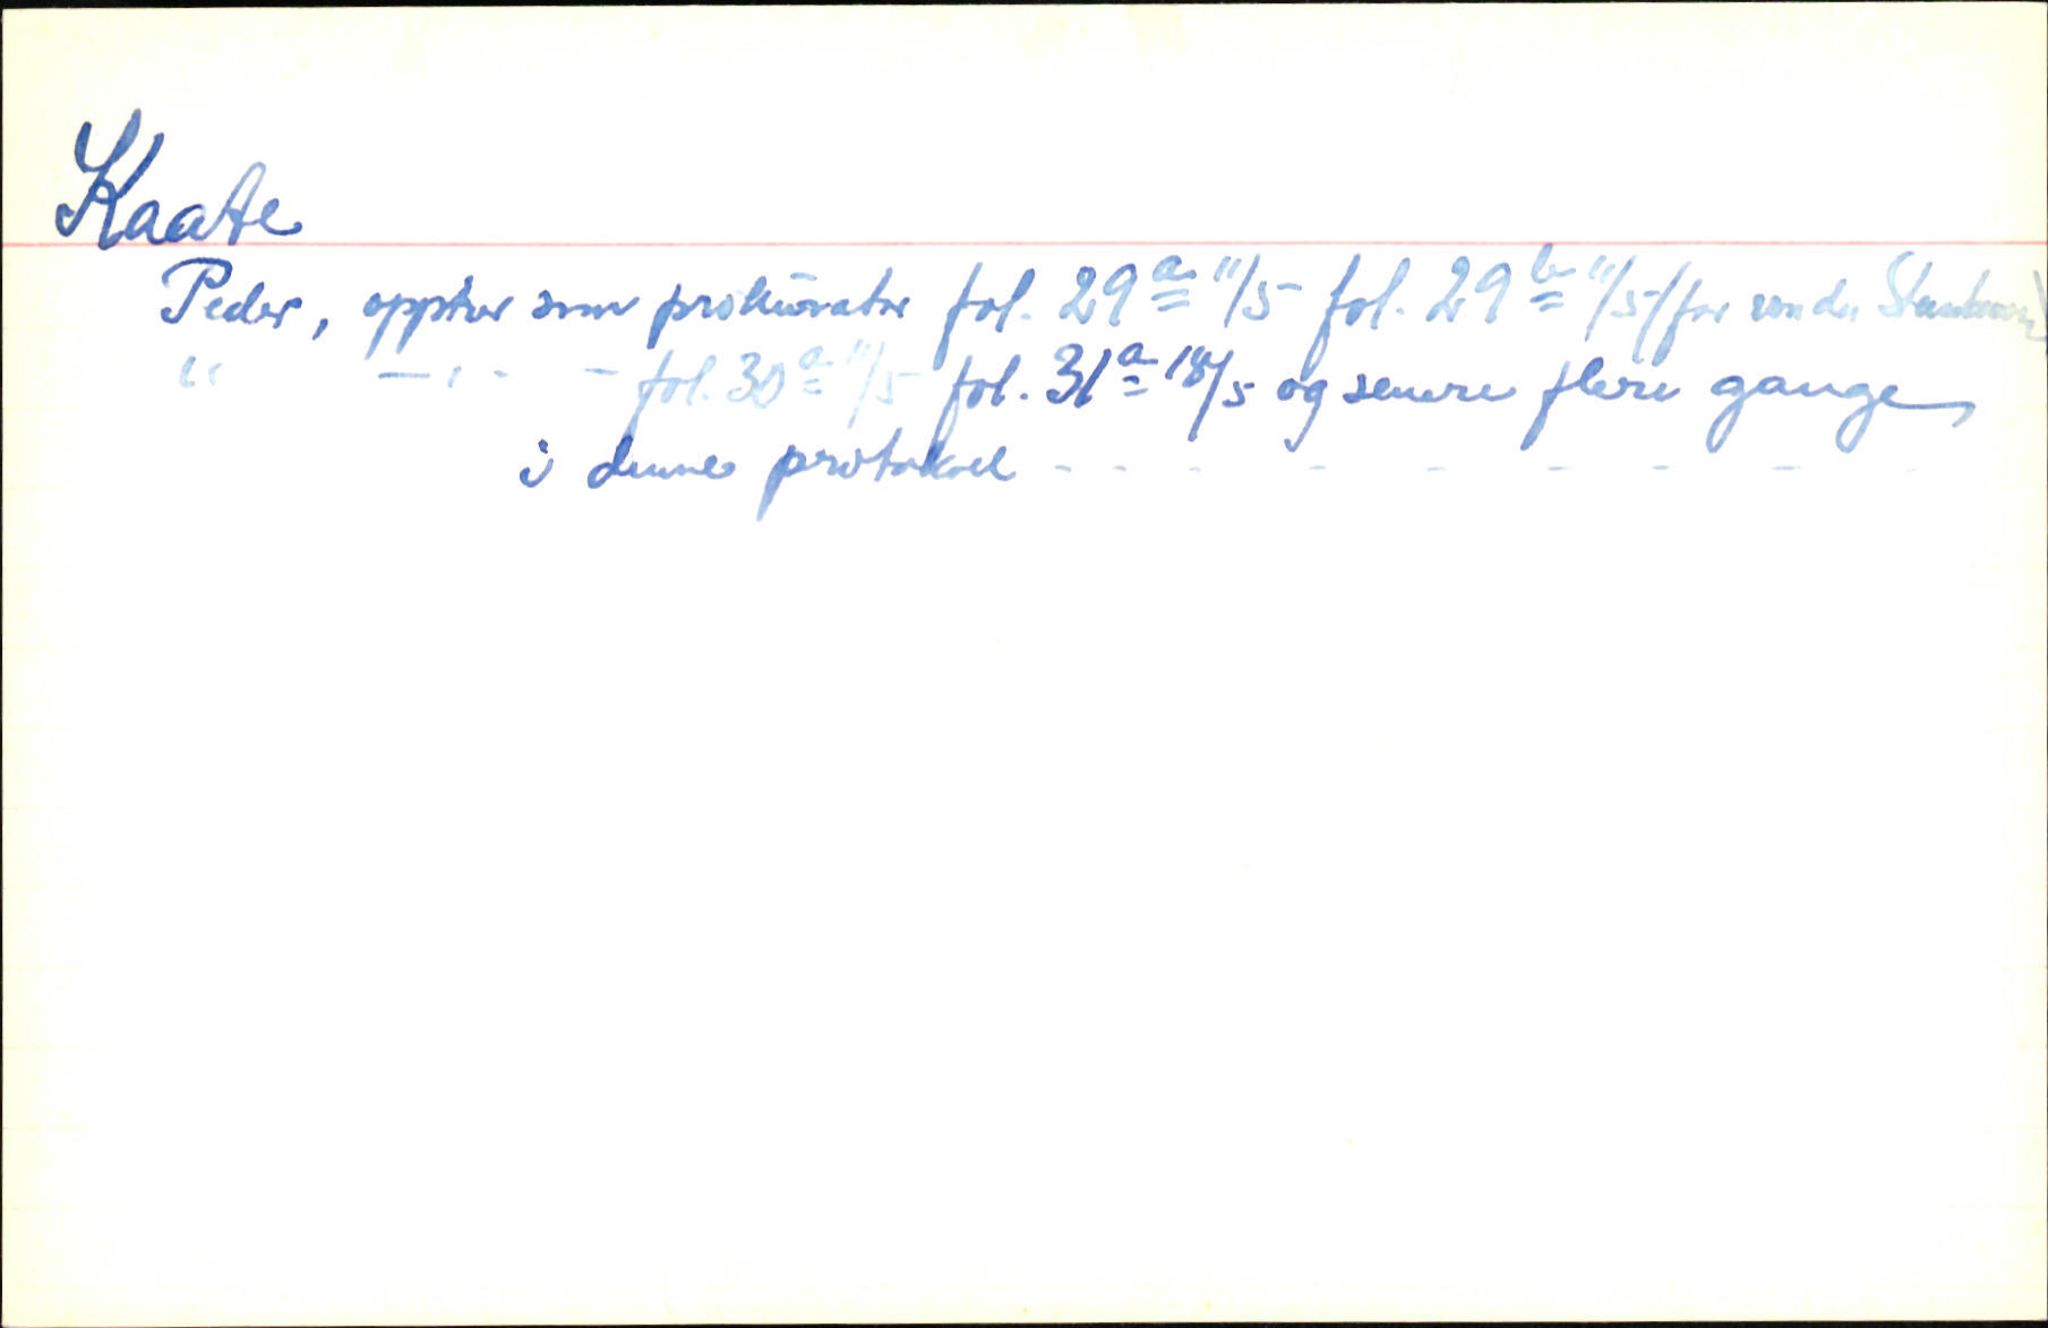 Kaate
Peder, opptrer som prokurator fol. 29a 11/5 fol. 29b 11/5 (for von der
" — , - - fol. 30a 11/5 fol. 31a 18/5 og senere flere gange
i denne protokoll - - - - - - - - -